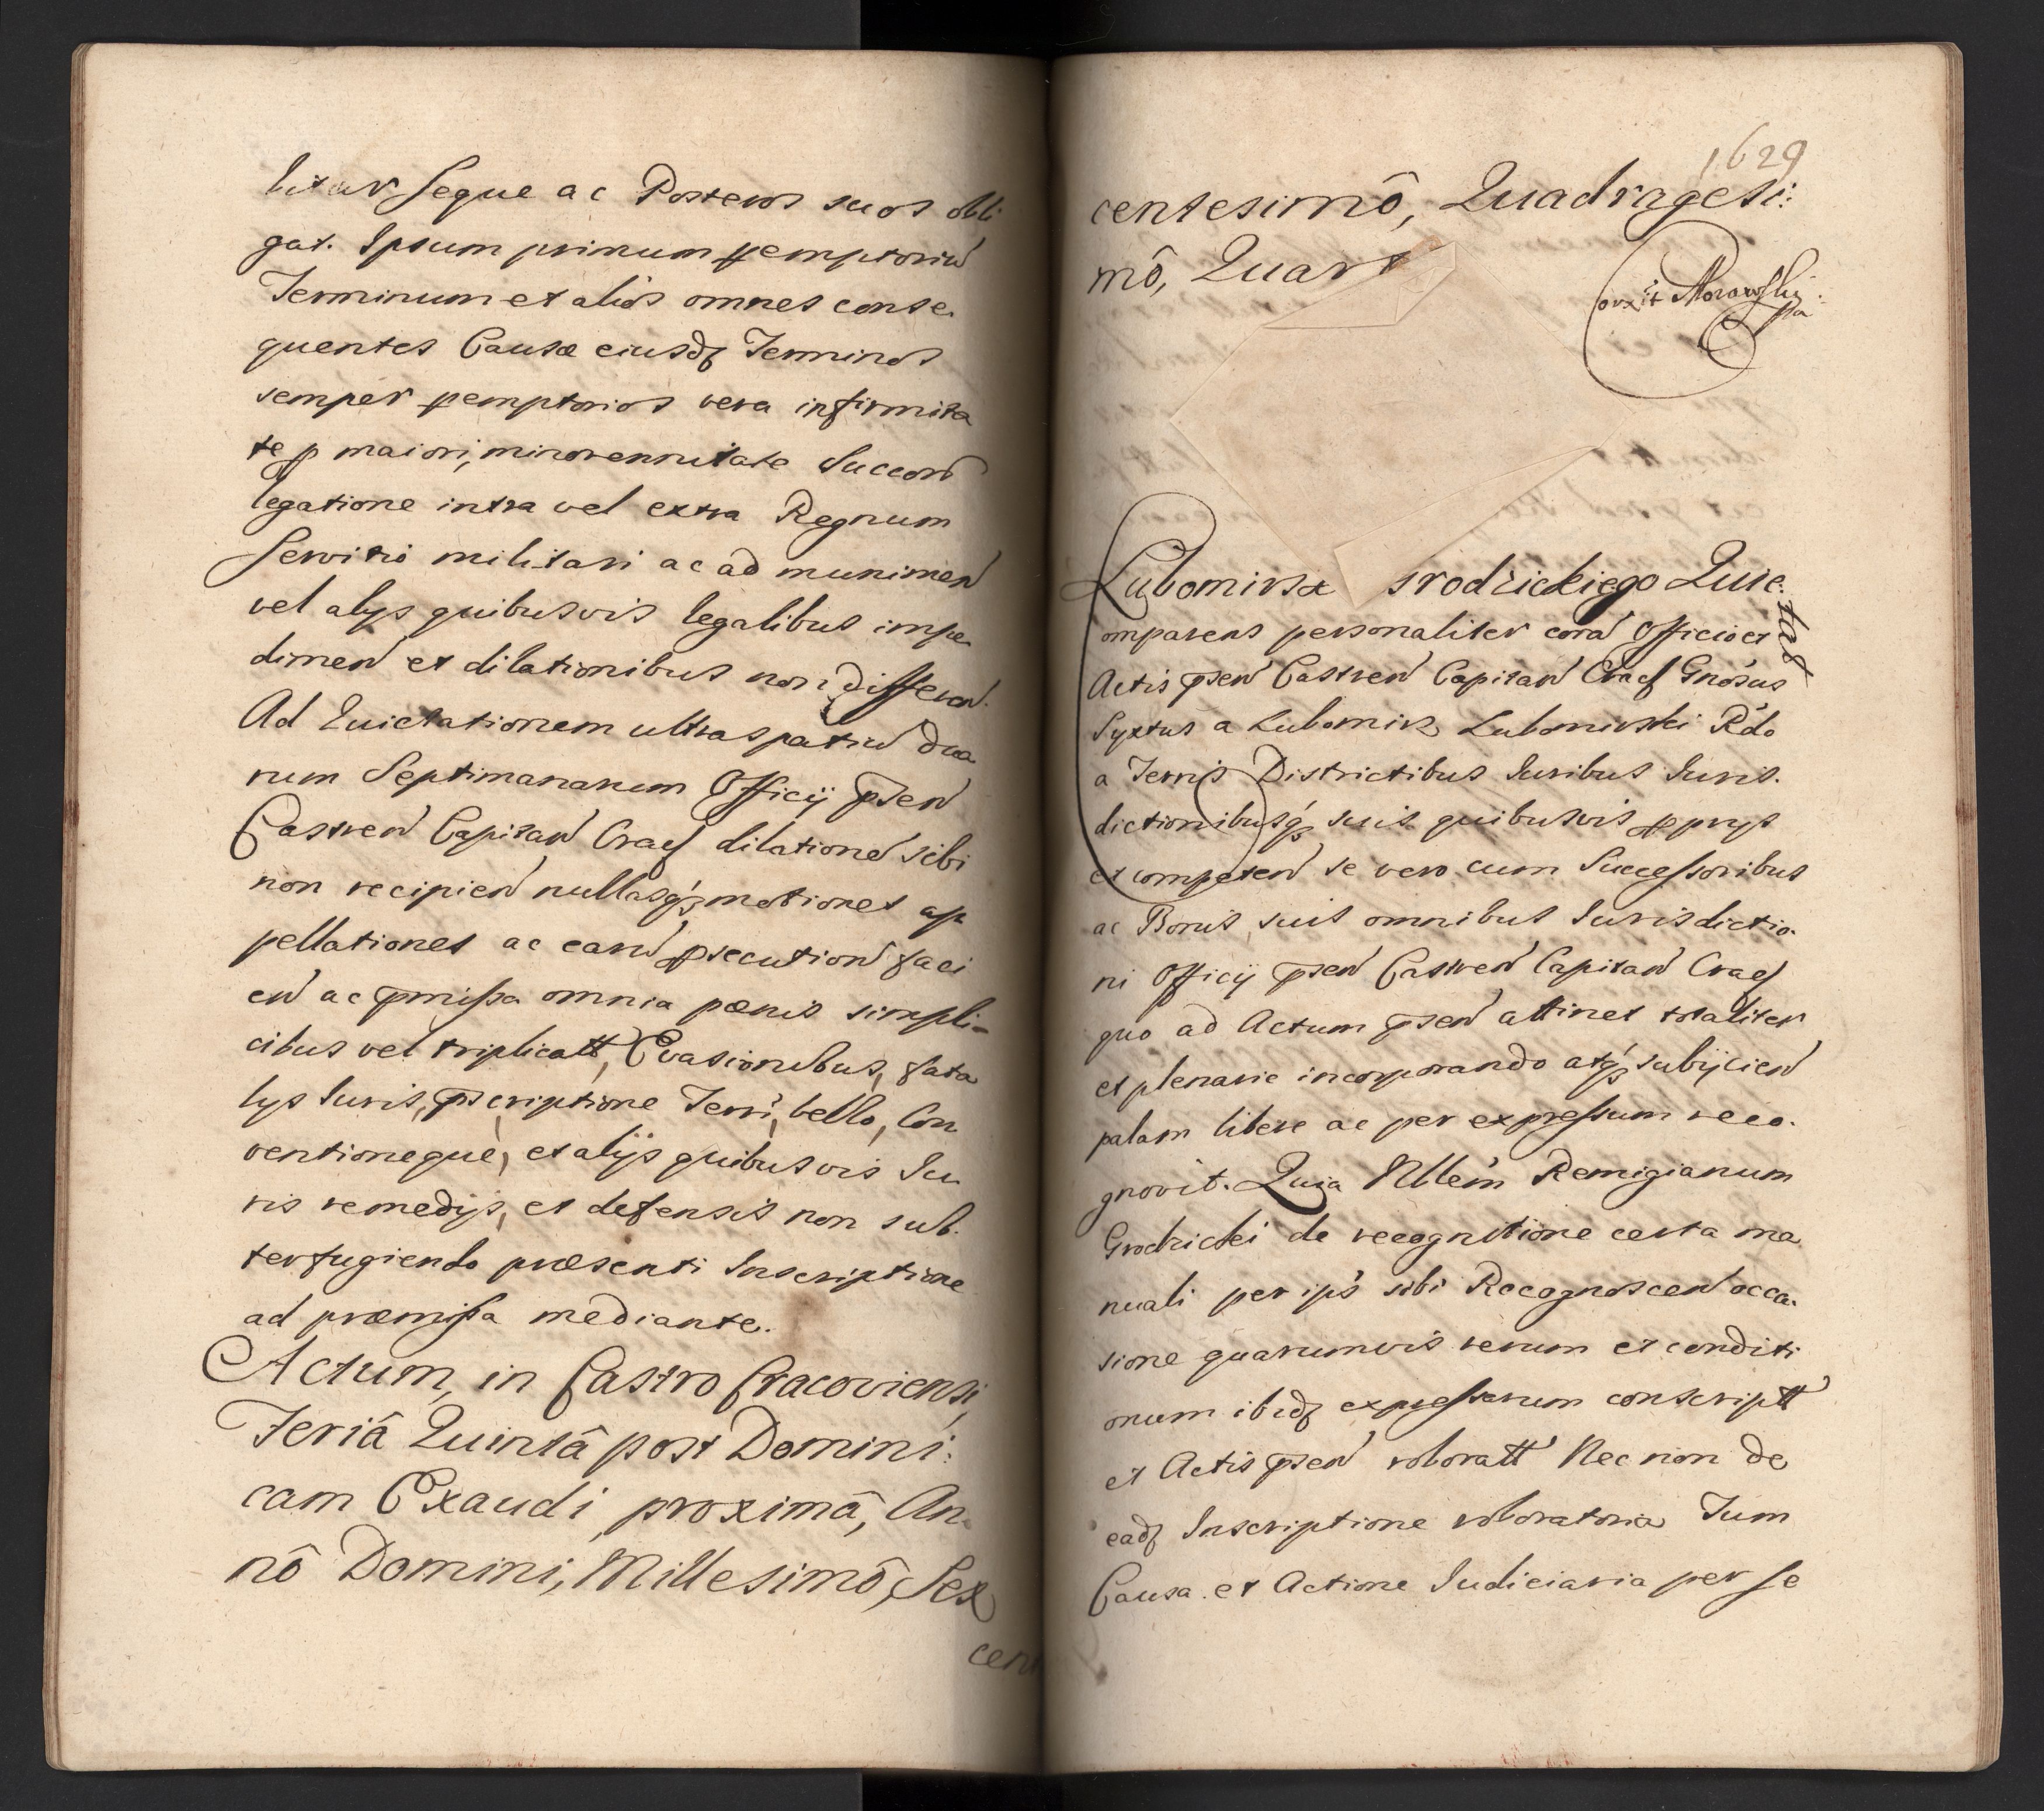 bitur seque ac Posteros suos obli
gat. Ipsum primum pemptoriu
Terminum et alios omnes conse
quentes Causæ eiusdq Terminos
semper pemptorios vera infirmita
te p maiori, minorennitate Succoru
legatione intra vel extra Regnum
Servitio militari ac ad munimen
vel alys quibusvis legalibus impe
dimen et dilationibus non differen.
Ad Quietationem ultra spatiu dua
rum Septimanarum Officij psen
Castren Capitan Cracq dilatione sibi
non recipien nullasq motiones ap
pellationes ac earu psecution faci
en ac pmissa omnia pænis simpli-
cibus vel triplicatt, Evasionibus, fata
lys Iuris, pscriptione Terri, bello, Con
ventioneque, et alijs quibusvis Iu
ris remedijs, et defensis non sub.
terfugiendo præsenti Inscriptione
ad præmissa mediante.
Actum, in Castro Cracoviensi,
Feriâ Quintâ post Domini:
cam Exaudi, proximâ, An
nô Domini, Millesimô, Sex
cen
1629
centesimô, Quadragesi:
mô, Quart
Corxit Morawski
Lubomirski Grodzickiego Quie:
tat
Comparens personaliter cora Officio et
Actis psen Castren Capitan Cracq Gnosus
Syxtus a Lubomirz Lubomirski Rdo
a Terris Districtibus Iuribus Iuris.
dictionibusq suis quibusvis pprys
et competen se vero cum Successoribus
ac Bonis suis omnibus Iurisdictio.
ni Officij psen Castren Capitan Cracq
quo ad Actum psen attinet totaliter
et plenarie incorporando atq subijcien
palam libere ac per expressum reco.
gnovit. Quia Nblem Remigianum
Grodzicki de recognitione certa ma
nuali per ips sibi Recognoscen occa.
sione quarumvis rerum et conditi
onum ibidq expressarum conscriptt
et Actis psen roboratt Nec non de
eadq Inscriptione roboratoria Tum
Causa et Actione Iudiciaria per se